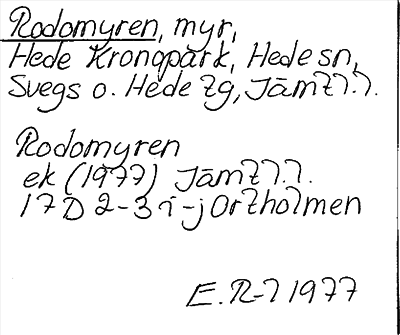 Rodomyren, myr,
Hede Kronopark, Hede sn,
Svegs o. Hede tg, Jämtl.l.
Rodomyren
ek (1977) Jämtl.l.
17D 2-3 i-j Ortholmen
E.R-l 1977